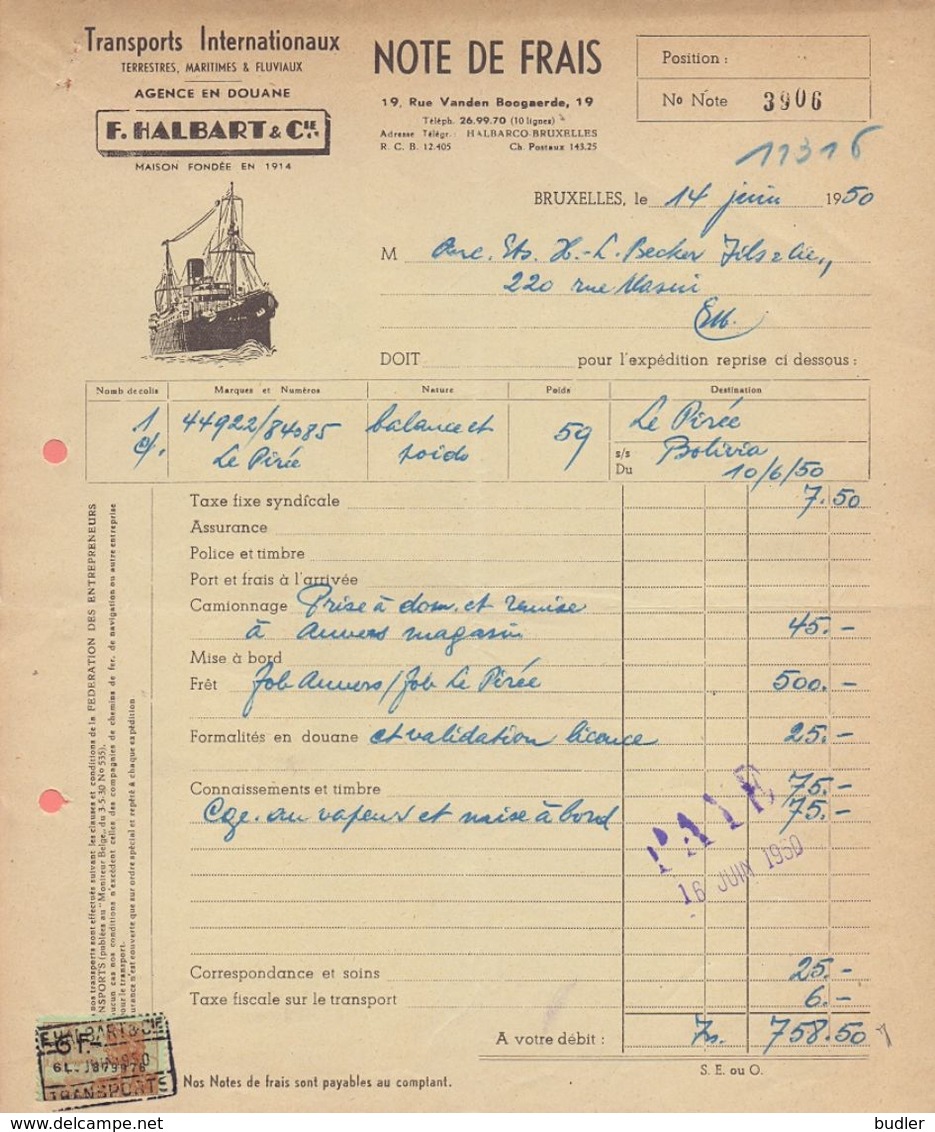 Transports Internationaux
TERRESTRES, MARITIMES & FLUVIAUX
AGENCE EN DOUANE
F. HALBART & Cie
MAISON FONDÉE EN 1914
NOTE DE FRAIS
19, Rue Vanden Boogaerde, 19
Téléph. 26.99.70 (10 lignes)
Adresse Télégr.: HALBARCO-BRUXELLES
R. C. B. 12.405 Ch. Postaux 143.25
Position :
No Note 3906
11316
BRUXELLES, le 14 juin 1950
M Anc. Ets. H.-L. Becker Fils & Cie.,
220 rue Masui
E/V.
DOIT pour l'expédition reprise ci dessous :
Nomb de colis Marques et Numéros Nature Poids Destination
1 44922/84085 balance et 59 Le Pirée
c/. Le Pirée poids s/s Bolivia
Du 10/6/50
Taxe fixe syndicale 7.50
Assurance
Police et timbre
Port et frais à l'arrivée
Camionnage Prise à dom. et remise
à Anvers magasin 45.-
Mise à bord
Frêt fob Anvers/fob Le Pirée 500.-
Formalités en douane et validation licence 25.-
Connaissements et timbre 75.-
Cge. au vapeur et mise à bord 75.-
PAYE
16 JUIN 1950
Correspondance et soins 25.-
Taxe fiscale sur le transport 6.-
A votre débit : Frs. 758.50
S. E. ou O.
Nos Notes de frais sont payables au comptant.
nos transports sont effectués suivant les clauses et conditions de la FEDERATION DES ENTREPRENEURS
NSPORTS (publiées au "Moniteur Belge, du 3-5-30 No 535).
aucun cas nos conditions n'excèdent celles des compagnies de chemins de fer, de navigation ou autre entreprise
pour le transport.
surance n'est couverte que sur ordre spécial et repété à chaque expédition
F. HALBART & CIE
6 F.-
TRANSPORTS
budler